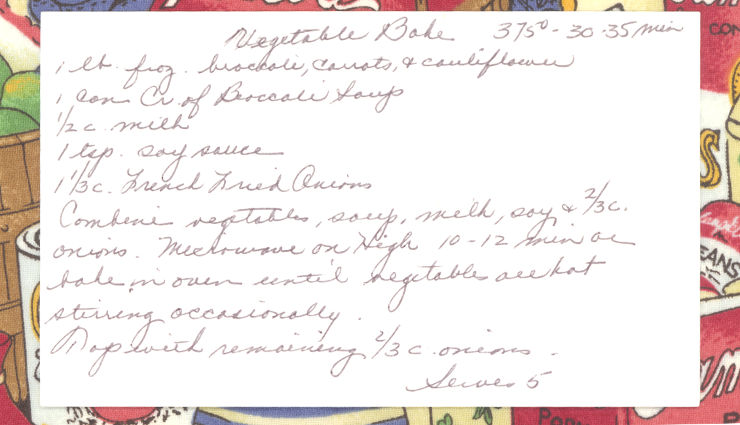 Vegetable Bake 375° - 30-35 min
1 lb. froz. broccoli, carrots, & cauliflower
1 can Cr. of Broccoli Soup
1/2 c. milk
1 tsp. soy sauce
1 1/3 c. French Fried Onions
Combine vegetables, soup, milk, soy & 2/3 c.
onions. Microwave on High 10-12 min or
bake in oven until vegetables are hot
stirring occasionally.
Top with remaining 2/3 c. onions.
Serves 5
CON
S
EANS